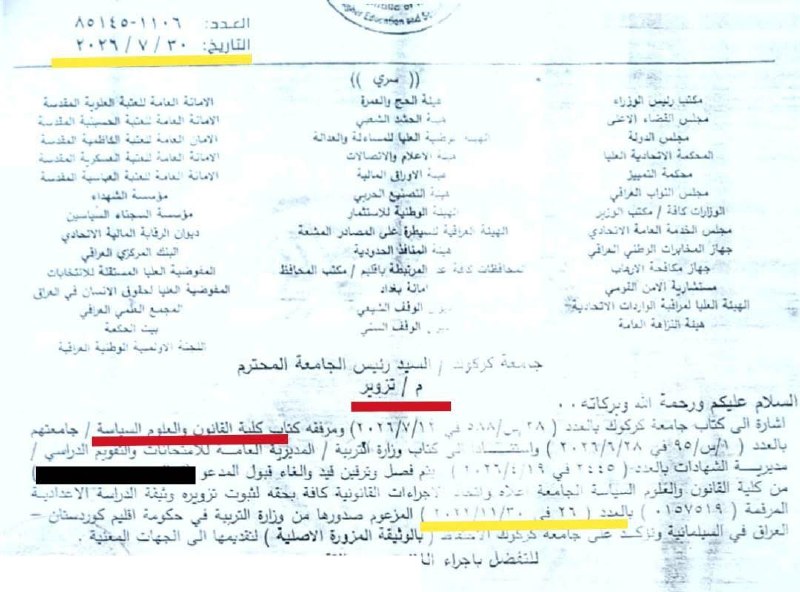 Higher Education and Sc
العدد: ١١٠٦-٨٥١٤٥
التاريخ: ٣٠ / ٧ / ٢٠٢٦
(( سري ))
مكتب رئيس الوزراء
مجلس القضاء الاعلى
مجلس الدولة
المحكمة الاتحادية العليا
محكمة التمييز
مجلس النواب العراقي
الوزارات كافة / مكتب الوزير
مجلس الخدمة العامة الاتحادي
جهاز المخابرات الوطني العراقي
جهاز مكافحة الارهاب
مستشارية الامن القومي
الهيئة العليا لمراقبة الواردات الاتحادية
هيئة النزاهة العامة
هيئة الحج والعمرة
هيئة الحشد الشعبي
العليا للمساءلة والعدالة
هيئة الاعلام والاتصالات
هيئة الاوراق المالية
هيئة التصنيع الحربي
الهيئة الوطنية للاستثمار
الهيئة العراقية للسيطرة على المصادر المشعة
هيئة المنافذ الحدودية
المحافظات كافة غير المرتبطة باقليم / مكتب المحافظ
امانة بغداد
ديوان الوقف الشيعي
ديوان الوقف السني
الامانة العامة للعتبة العلوية المقدسة
الامانة العامة للعتبة الحسينية المقدسة
الامان العامة للعتبة الكاظمية المقدسة
الامانة العامة للعتبة العسكرية المقدسة
الامانة العامة للعتبة العباسية المقدسة
مؤسسة الشهداء
مؤسسة السجناء السياسين
ديوان الرقابة المالية الاتحادي
البنك المركزي العراقي
المفوضية العليا المستقلة للانتخابات
المفوضية العليا لحقوق الانسان في العراق
المجمع العلمي العراقي
بيت الحكمة
اللجنة الاولمبية الوطنية العراقية
جامعة كركوك / السيد رئيس الجامعة المحترم
م / تزوير
السلام عليكم ورحمة الله وبركاته . .
اشارة الى كتاب جامعة كركوك بالعدد ( ٢٨ س/٥٩٨ في ٢٠٢٦/٧/١٢) ومرفقه كتاب كلية القانون والعلوم السياسة / جامعتهم
بالعدد ( ١/س/٩٥ في ٢٠٢٦/٦/٢٨ ) واستنادا الى كتاب وزارة التربية / المديرية العامة للامتحانات والتقويم الدراسي /
مديرية الشهادات بالعدد ( ٢٤٤٥ في ٢٠٢٦/٤/١٩ ) يتم فصل وترقين قيد والغاء قبول المدعو ( )
من كلية القانون والعلوم السياسة الجامعة اعلاه واتخاذ الاجراءات القانونية كافة بحقه لثبوت تزويره وثيقة الدراسة الاعدادية
المرقمة ( ٠١٥٧٥١٩ ) بالعدد ( ٢٦ في ٢٠٢٢/١١/٣٠ ) المزعوم صدورها من وزارة التربية في حكومة اقليم كوردستان -
العراق في السليمانية ونؤكد على جامعة كركوك الاحتفاظ ( بالوثيقة المزورة الاصلية ) لتقديمها الى الجهات المعنية .
للتفضل باجراء